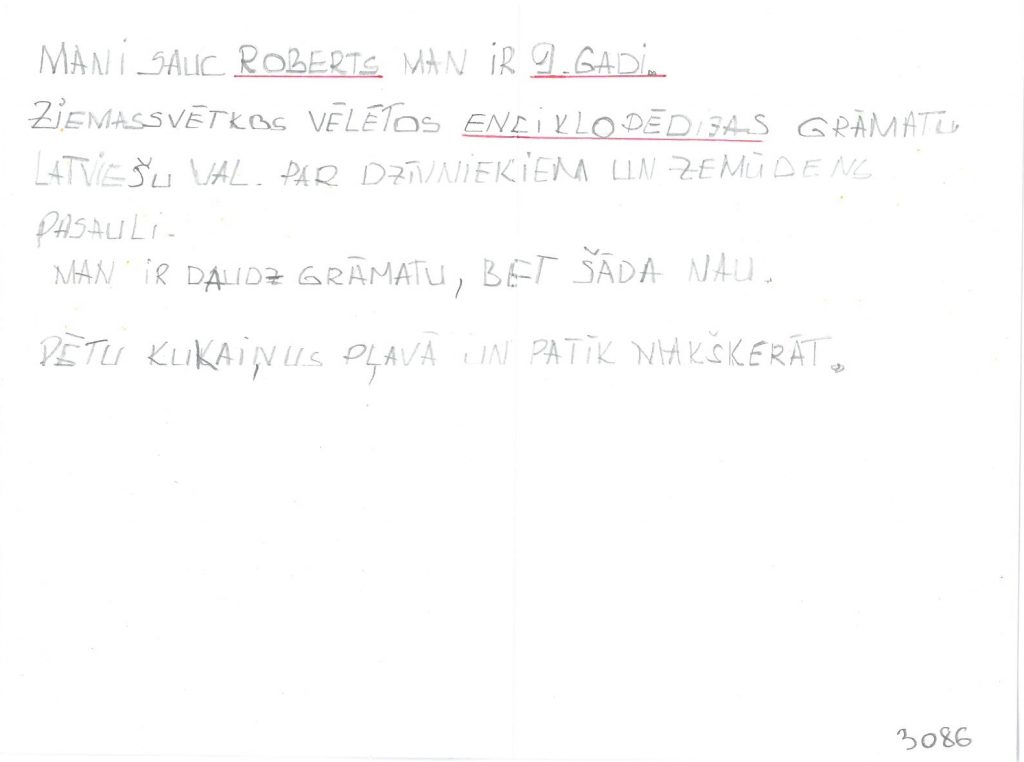 MANI SAUC ROBERTS MAN IR 9. GADI.
ZIEMASSVĒTKOS VĒLĒTOS ENCIKLOPĒDIJAS GRĀMATU
LATVIEŠU VAL. PAR DZĪVNIEKIEM UN ZEMŪDENS
PASAULI.
MAN IR DAUDZ GRĀMATU, BET ŠĀDA NAU.
PĒTU KUKAIŅUS PĻAVĀ UN PATĪK MAKŠĶERĀT.
3086